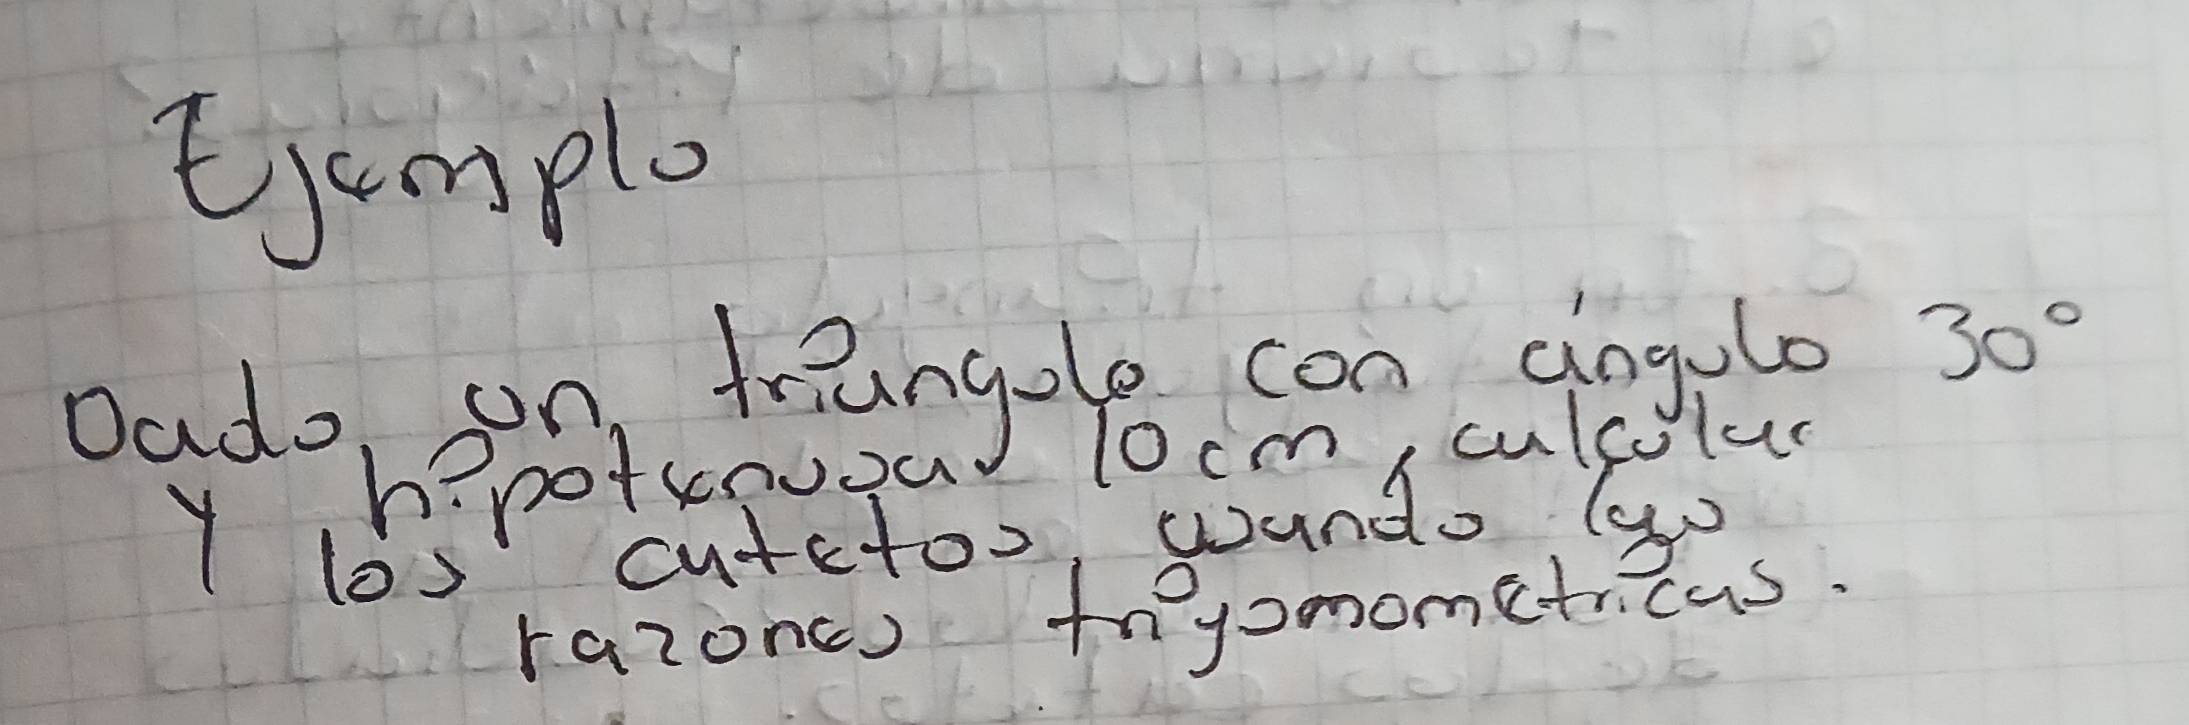 Ejemplo
Dado un triángulo con ángulo 30°
y hipotenusa 10cm, calcular
los catetos, usando las
razones trigomometricas.